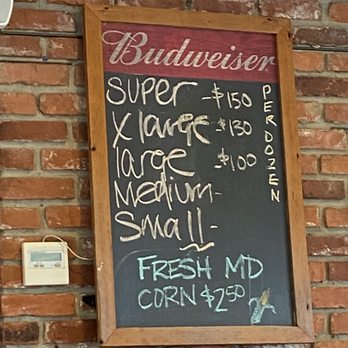 Budweiser
SUPER - $150
X large - $130
large - $100
Medium -
Small -
PER DOZEN
FRESH MD
CORN $2.50